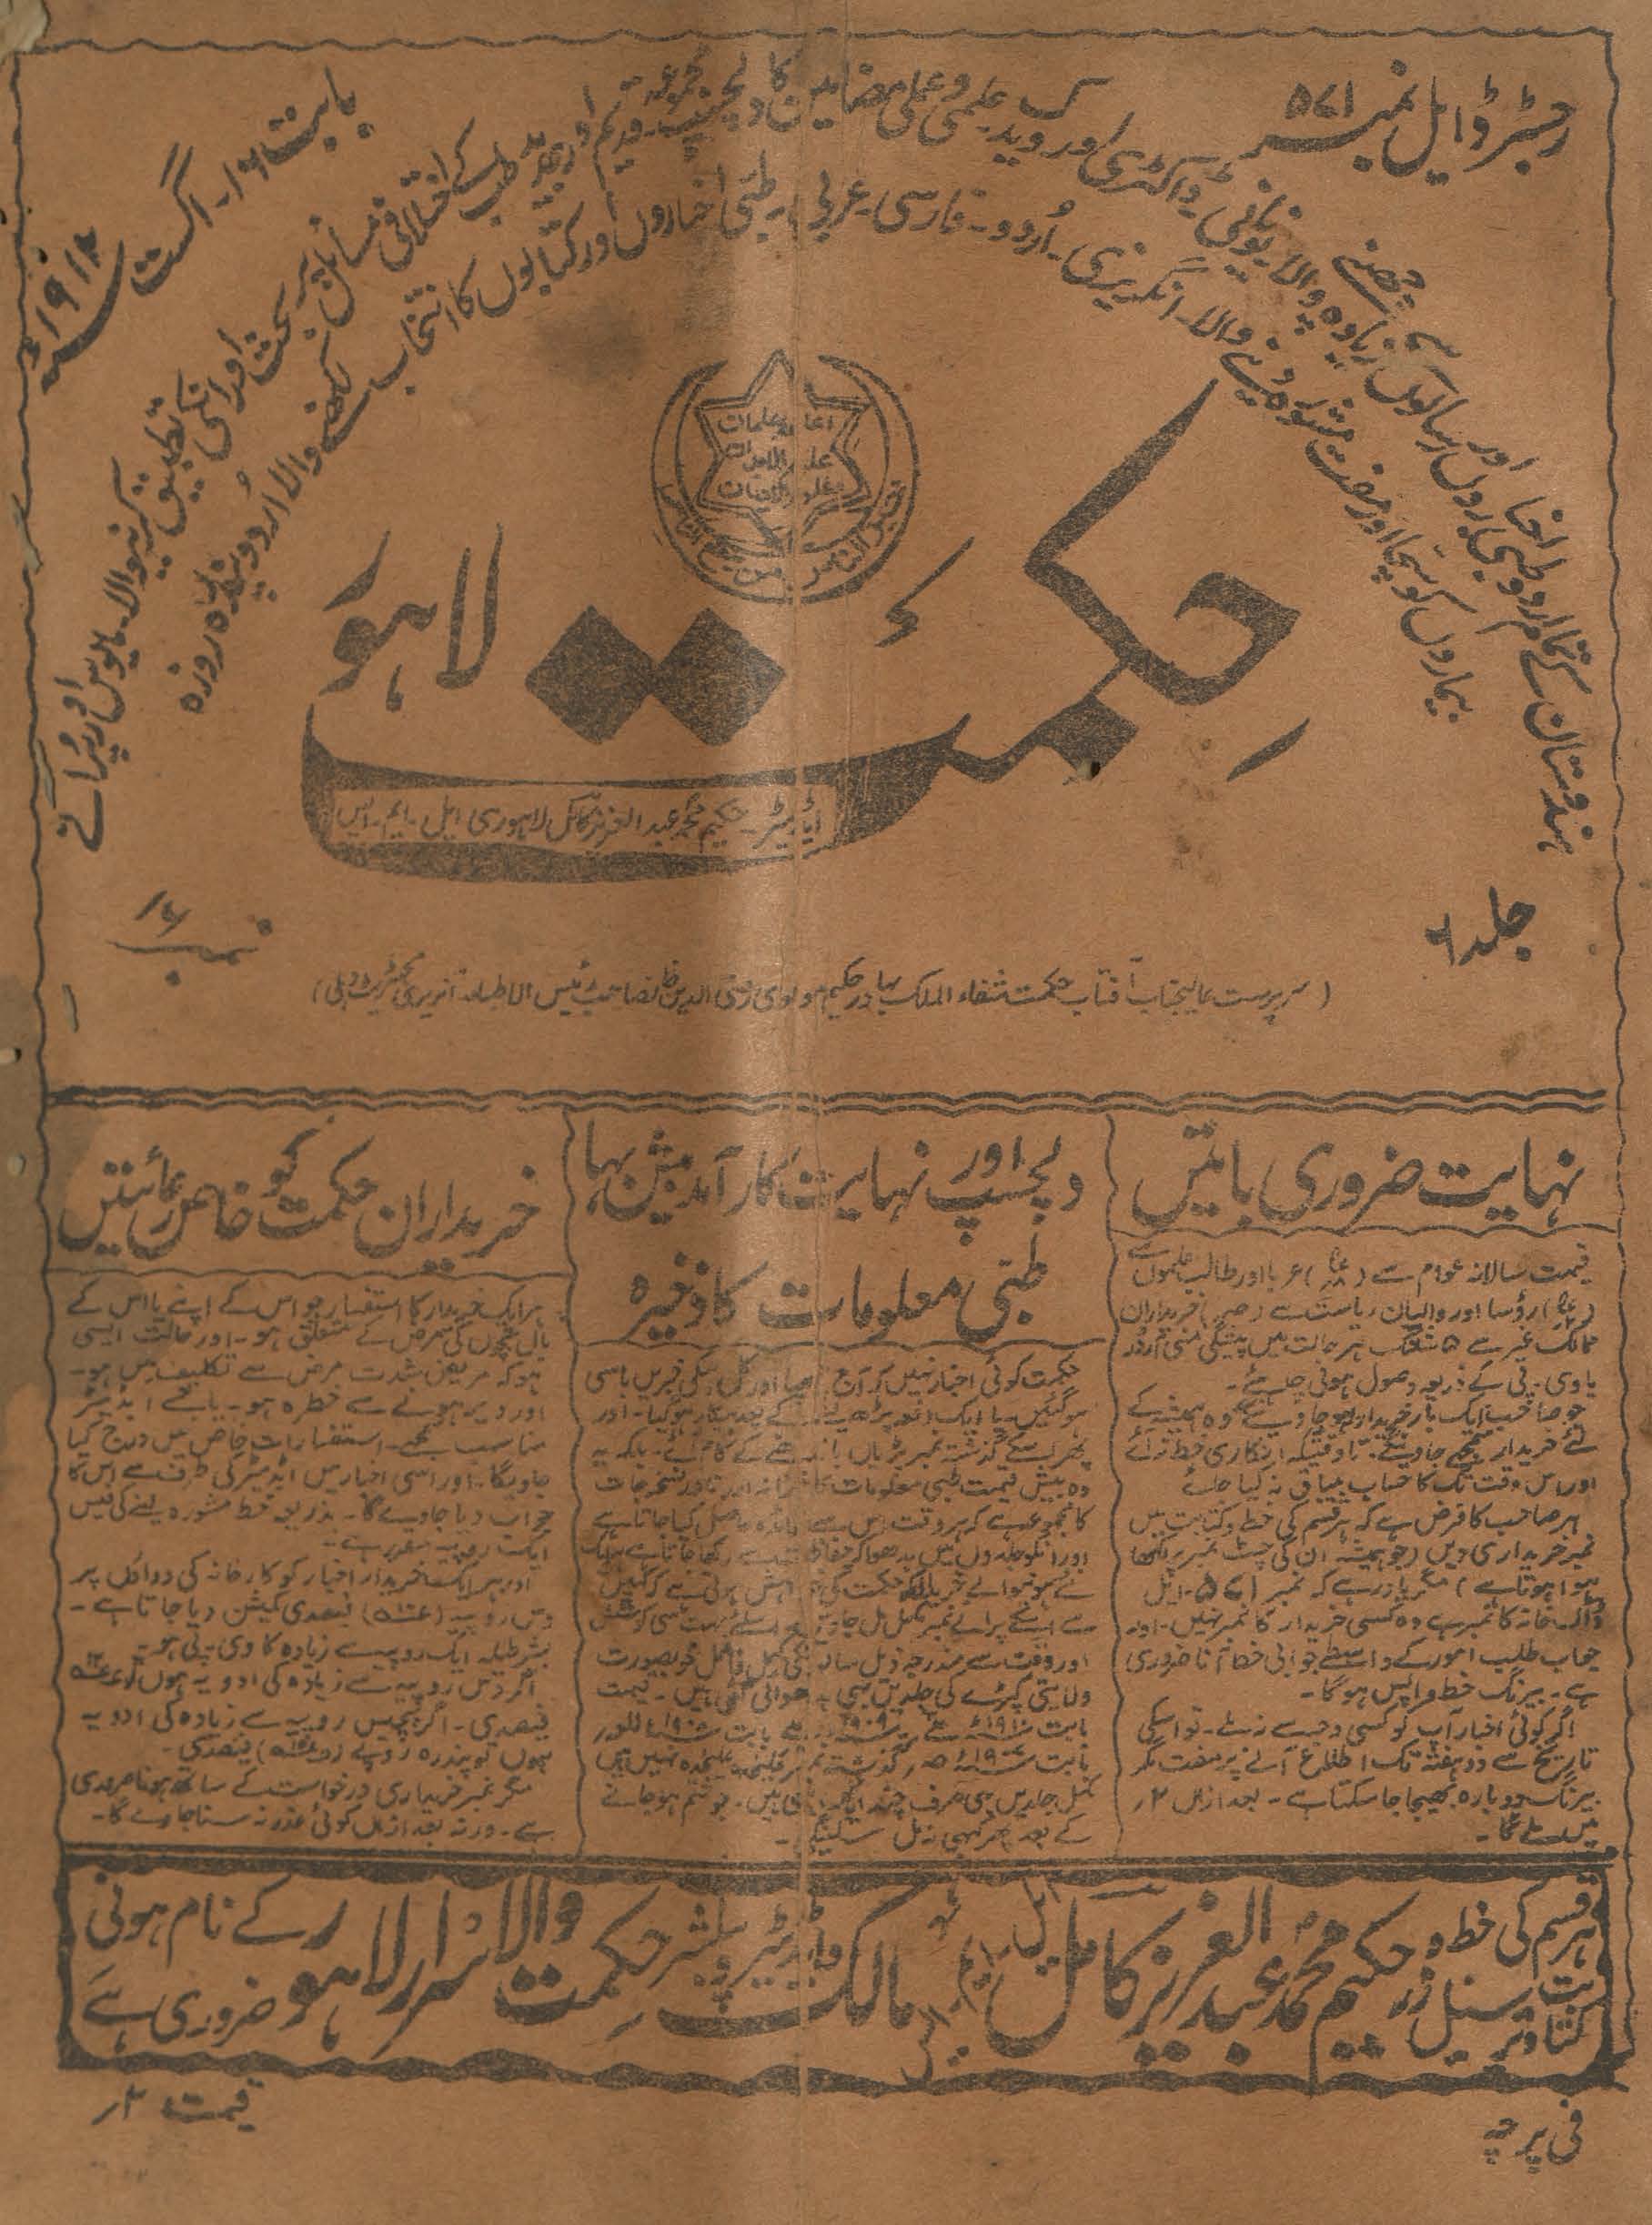 رجسٹرڈ ایل نمبر ۵۷۱
بابت ۱۶۔ اگست
ہندوستان کے تمام اردو طبی اخباروں اور رسالوں سے زیادہ چھپنے والا یونانی ڈاکٹری اور ویدک علمی و عملی مضامین کا دلچسپ مجموعہ۔ قدیم اور جدید طب کے اختلافی مسائل پر بحث اور انکی تطبیق کرنیوالا۔ مایوس اور پرانے
بیماروں کو سچا اور مفت مشورہ دینے والا۔ انگریزی۔ اُردو۔ فارسی۔ عربی طبی اخباروں اور کتابوں کا انتخاب رکھنے والا اُردو پندرہ روزہ
خیر الناس من ینفع الناس
حکمت لاہور
ایڈیٹر۔ حکیم محمد عبدالعزیز کامل لاہوری ایل۔ ایم۔ ایس
جلد ۶
نمبر ۱۶
(سرپرست عالیجناب آفتاب حکمت شفاء الملک بہادر حکیم مولوی رضی الدین خانصاحب رئیس الاطباء آنریری مجسٹریٹ دہلی)
نہایت ضروری باتیں
قیمت سالانہ عوام سے غربا اور طالب علموں سے
رؤسا اور والیان ریاست سے خریداران
ممالک غیر سے ۵ شلنگ ہر حالت میں پیشگی منی آرڈر
یا وی۔ پی کے ذریعہ وصول ہونی چاہئے۔
جو صاحب ایک بار خریدار ہو جاوینگے وہ ہمیشہ کے
لئے خریدار سمجھے جاوینگے۔ تاوقتیکہ انکاری خط نہ آئے
اور اس وقت تک کا حساب بیباق نہ کیا جائے
ہر صاحب کا فرض ہے کہ ہر قسم کی خط و کتابت میں
نمبر خریداری دیں (جو ہمیشہ ان کی چٹ نمبر پر لکھا
ہوا ہوتا ہے) مگر یاد رہے کہ نمبر ۵۷۱۔ ایل
ڈاک خانہ کا نمبر ہے وہ کسی خریدار کا نمبر نہیں۔ اور
جواب طلب امور کے واسطے جوابی خط آنا ضروری
ہے۔ بیرنگ خط واپس ہوگا۔
اگر کوئی اخبار آپ کو کسی وجہ سے نہ ملے۔ تو اسکی
تاریخ سے دو ہفتہ تک اطلاع آنے پر مفت مگر
بیرنگ دوبارہ بھیجا جا سکتا ہے۔ بعد ازاں ۲؍
میں ملے گا۔
دلچسپ اور نہایت کار آمد بیش بہا
طبی معلومات کا ذخیرہ
حکمت کوئی اخبار نہیں کہ آج اور کل اسکی خبریں باسی
ہو گئیں۔ یا ایک دفعہ پڑھ لینے کے بعد بیکار ہو گیا۔ اور
پھر اسکے گذشتہ نمبر پڑیاں باندھنے کے کام آئے۔ بلکہ یہ
وہ بیش قیمت طبی معلومات کا خزانہ اور نادر نسخہ جات
کا مجموعہ ہے کہ ہر وقت اس سے فائدہ حاصل کیا جاتا ہے
اور انکو جلدوں میں بندھوا کر حفاظت سے رکھا جاتا ہے ہر ایک
نئے ہونیوالے خریدار حکمت کی خواہش ہوتی ہے کہ کہیں
سے اسکے پرانے نمبر مکمل مل جاویں اسلئے بہت سی کوشش
اور وقت سے مندرجہ ذیل سالوں کی مکمل فائل خوبصورت
ولایتی کپڑے کی جلدیں بھی بندھوائی گئی ہیں۔ قیمت
مکمل جلدیں بھی صرف چند ایک باقی ہیں۔ جو ختم ہو جانے
کے بعد پھر کبھی نہ مل سکینگی۔
خریداران حکمت کو خاص رعائتیں
ہر ایک خریدار کا استفسار جو اس کے اپنے یا اس کے
بال بچوں کی مرض کے متعلق ہو۔ اور حالت ایسی
ہو کہ مریض شدت مرض سے تکلیف میں ہو۔
اور دیر ہونے سے خطرہ ہو۔ یا جسے ایڈیٹر
مناسب سمجھے۔ استفسارات خاص میں درج کیا
جاویگا۔ اور اسی اخبار میں ایڈیٹر کی طرف سے اس کا
جواب دیا جاوے گا۔ بذریعہ خط مشورہ لینے کی فیس
ایک روپیہ مقرر ہے۔
اور ہر ایک خریدار اخبار کو کارخانہ کی دوائوں پر
دس روپیہ فیصدی کمیشن دیا جاتا ہے۔
بشرطیکہ ایک روپیہ سے زیادہ کا وی۔ پی ہو۔
اگر دس روپیہ سے زیادہ کی ادویہ ہوں تو
فیصدی۔ اگر پچیس روپیہ سے زیادہ کی ادویہ
ہوں تو پندرہ روپے فیصدی۔
مگر نمبر خریداری درخواست کے ساتھ ہونا ضروری
ہے۔ ورنہ بعد ازاں کوئی عذر نہ سنا جاوے گا۔
ہر قسم کی خط و کتابت و ترسیل زر حکیم محمد عبدالعزیز کامل مالک و ایڈیٹر و پبلشر حکمت والاسرار لاہور کے نام ہونی ضروری ہے
فی پرچہ
قیمت ۲؍